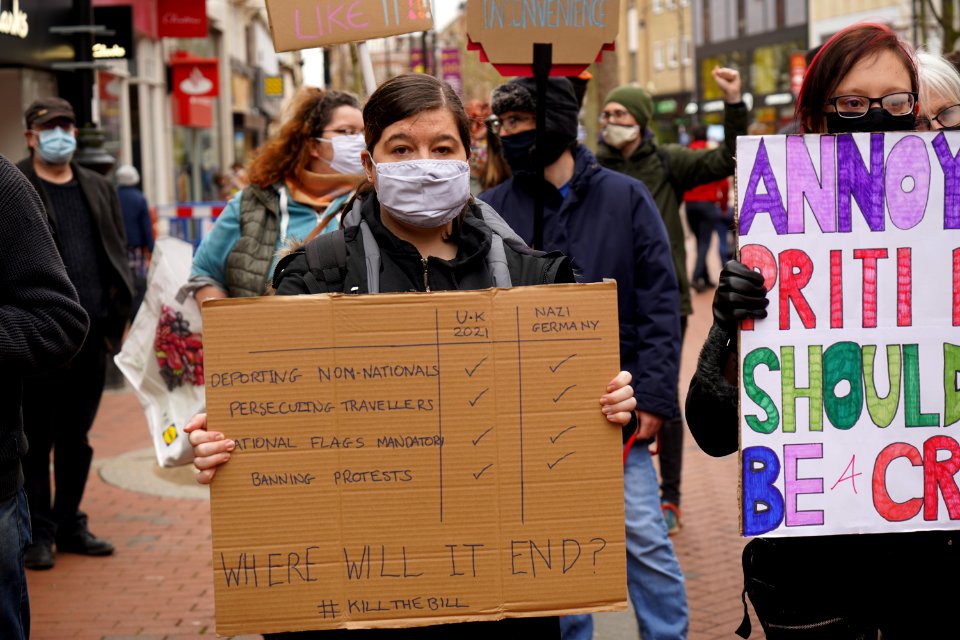 LIKE
INCONVENIENCE
U.K 2021
NAZI GERMANY
DEPORTING NON-NATIONALS
PERSECUING TRAVELLERS
ATIONAL FLAGS MANDATORY
BANNING PROTESTS
WHERE WILL IT END?
#KILLTHEBILL
ANNOY
PRITI
SHOULD
BE A CR